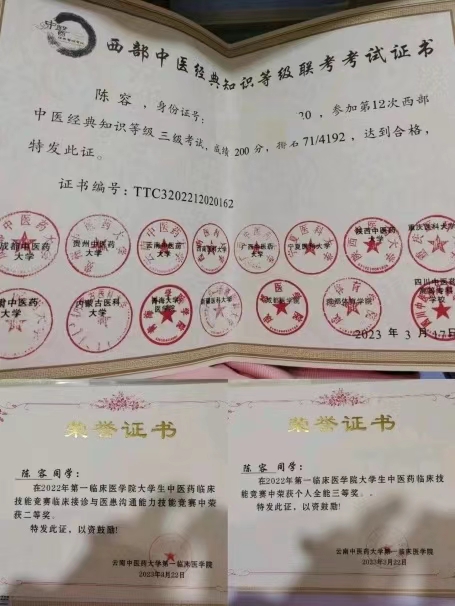 西部中医经典知识等级联考考试证书
陈容，身份证号： 20，参加第12次西部
中医经典知识等级 三级考试，成绩 200分，排名 71/4192，达到合格，
特发此证。
证书编号：TTC3202212020162
成都中医药大学 贵州中医药大学 云南中医药 广西中医药 宁夏医科大学 陕西中医药大学 重庆医科大学
中医药大学 内蒙古医科大学 青海大学医学院 成都体育学院
2023 年 3 月 17日
荣誉证书
陈 容 同学：
在2022年第一临床医学院大学生中医药临床
技能竞赛临床接诊与医患沟通能力技能竞赛中荣
获二等奖。
特发此证，以资鼓励！
云南中医药大学第一临床医学院
2023年3月22日
荣誉证书
陈 容 同学：
在2022年第一临床医学院大学生中医药临床技
能竞赛中荣获个人全能三等奖。
特发此证，以资鼓励！
云南中医药大学第一临床医学院
2023年3月22日